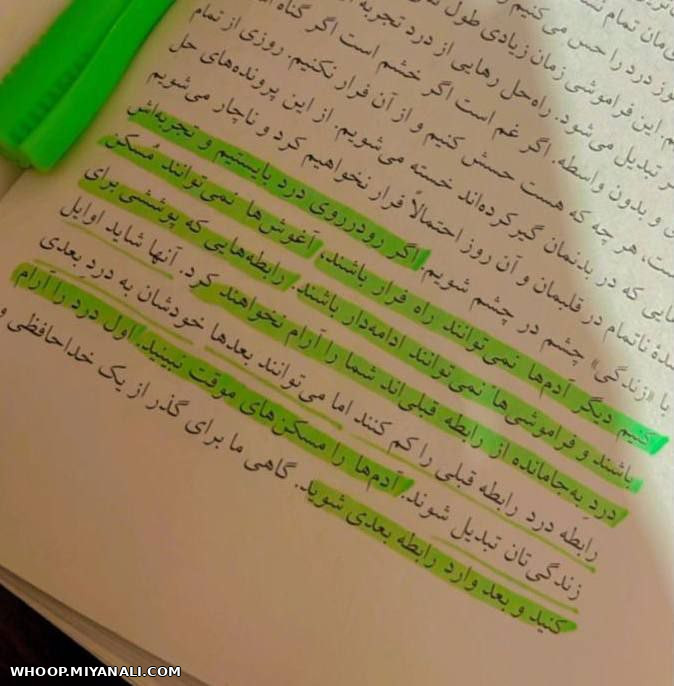 وز درد را حس می‌کنیم و
م. این فراموشی زمان زیادی طول
ر تبدیل می‌شود. راه‌حل رهایی از درد تجربه
ی و بدون واسطه. اگر غم است اگر خشم است اگر گناه
ست، هر چه که هست حسش کنیم و از آن فرار نکنیم. روزی از تمام
هایی که در بدنمان گیر کرده‌اند خسته می‌شویم. از این پرونده‌های حل
شدهٔ ناتمام در قلبمان و آن روز احتمالاً فرار نخواهیم کرد و ناچار می‌شویم
با «زندگی» چشم در چشم شویم. اگر رودرروی درد بایستیم و تجربه‌اش
کنیم دیگر آدم‌ها نمی‌توانند راه فرار باشند، آغوش‌ها نمی‌توانند مُسکن
باشند و فراموشی‌ها نمی‌توانند ادامه‌دار باشند. رابطه‌هایی که پوششی برای
دردِ به‌جامانده از رابطه قبلی‌اند شما را آرام نخواهند کرد. آنها شاید اوایل
رابطه درد رابطه قبلی را کم کنند اما می‌توانند بعدها خودشان به دردِ بعدی
زندگی‌تان تبدیل شوند. آدم‌ها را مسکن‌های موقت نبینید. اول درد را آرام
کنید و بعد وارد رابطه بعدی شوید. گاهی ما برای گذر از یک خداحافظی و
WHOOP.MIYANALI.COM